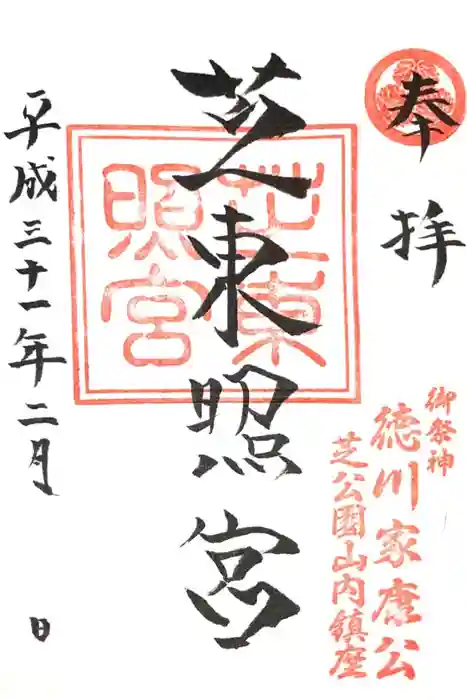 奉拝
御祭神
徳川家康公
芝公園山内鎮座
芝東照宮
芝東照宮
平成三十一年二月 日